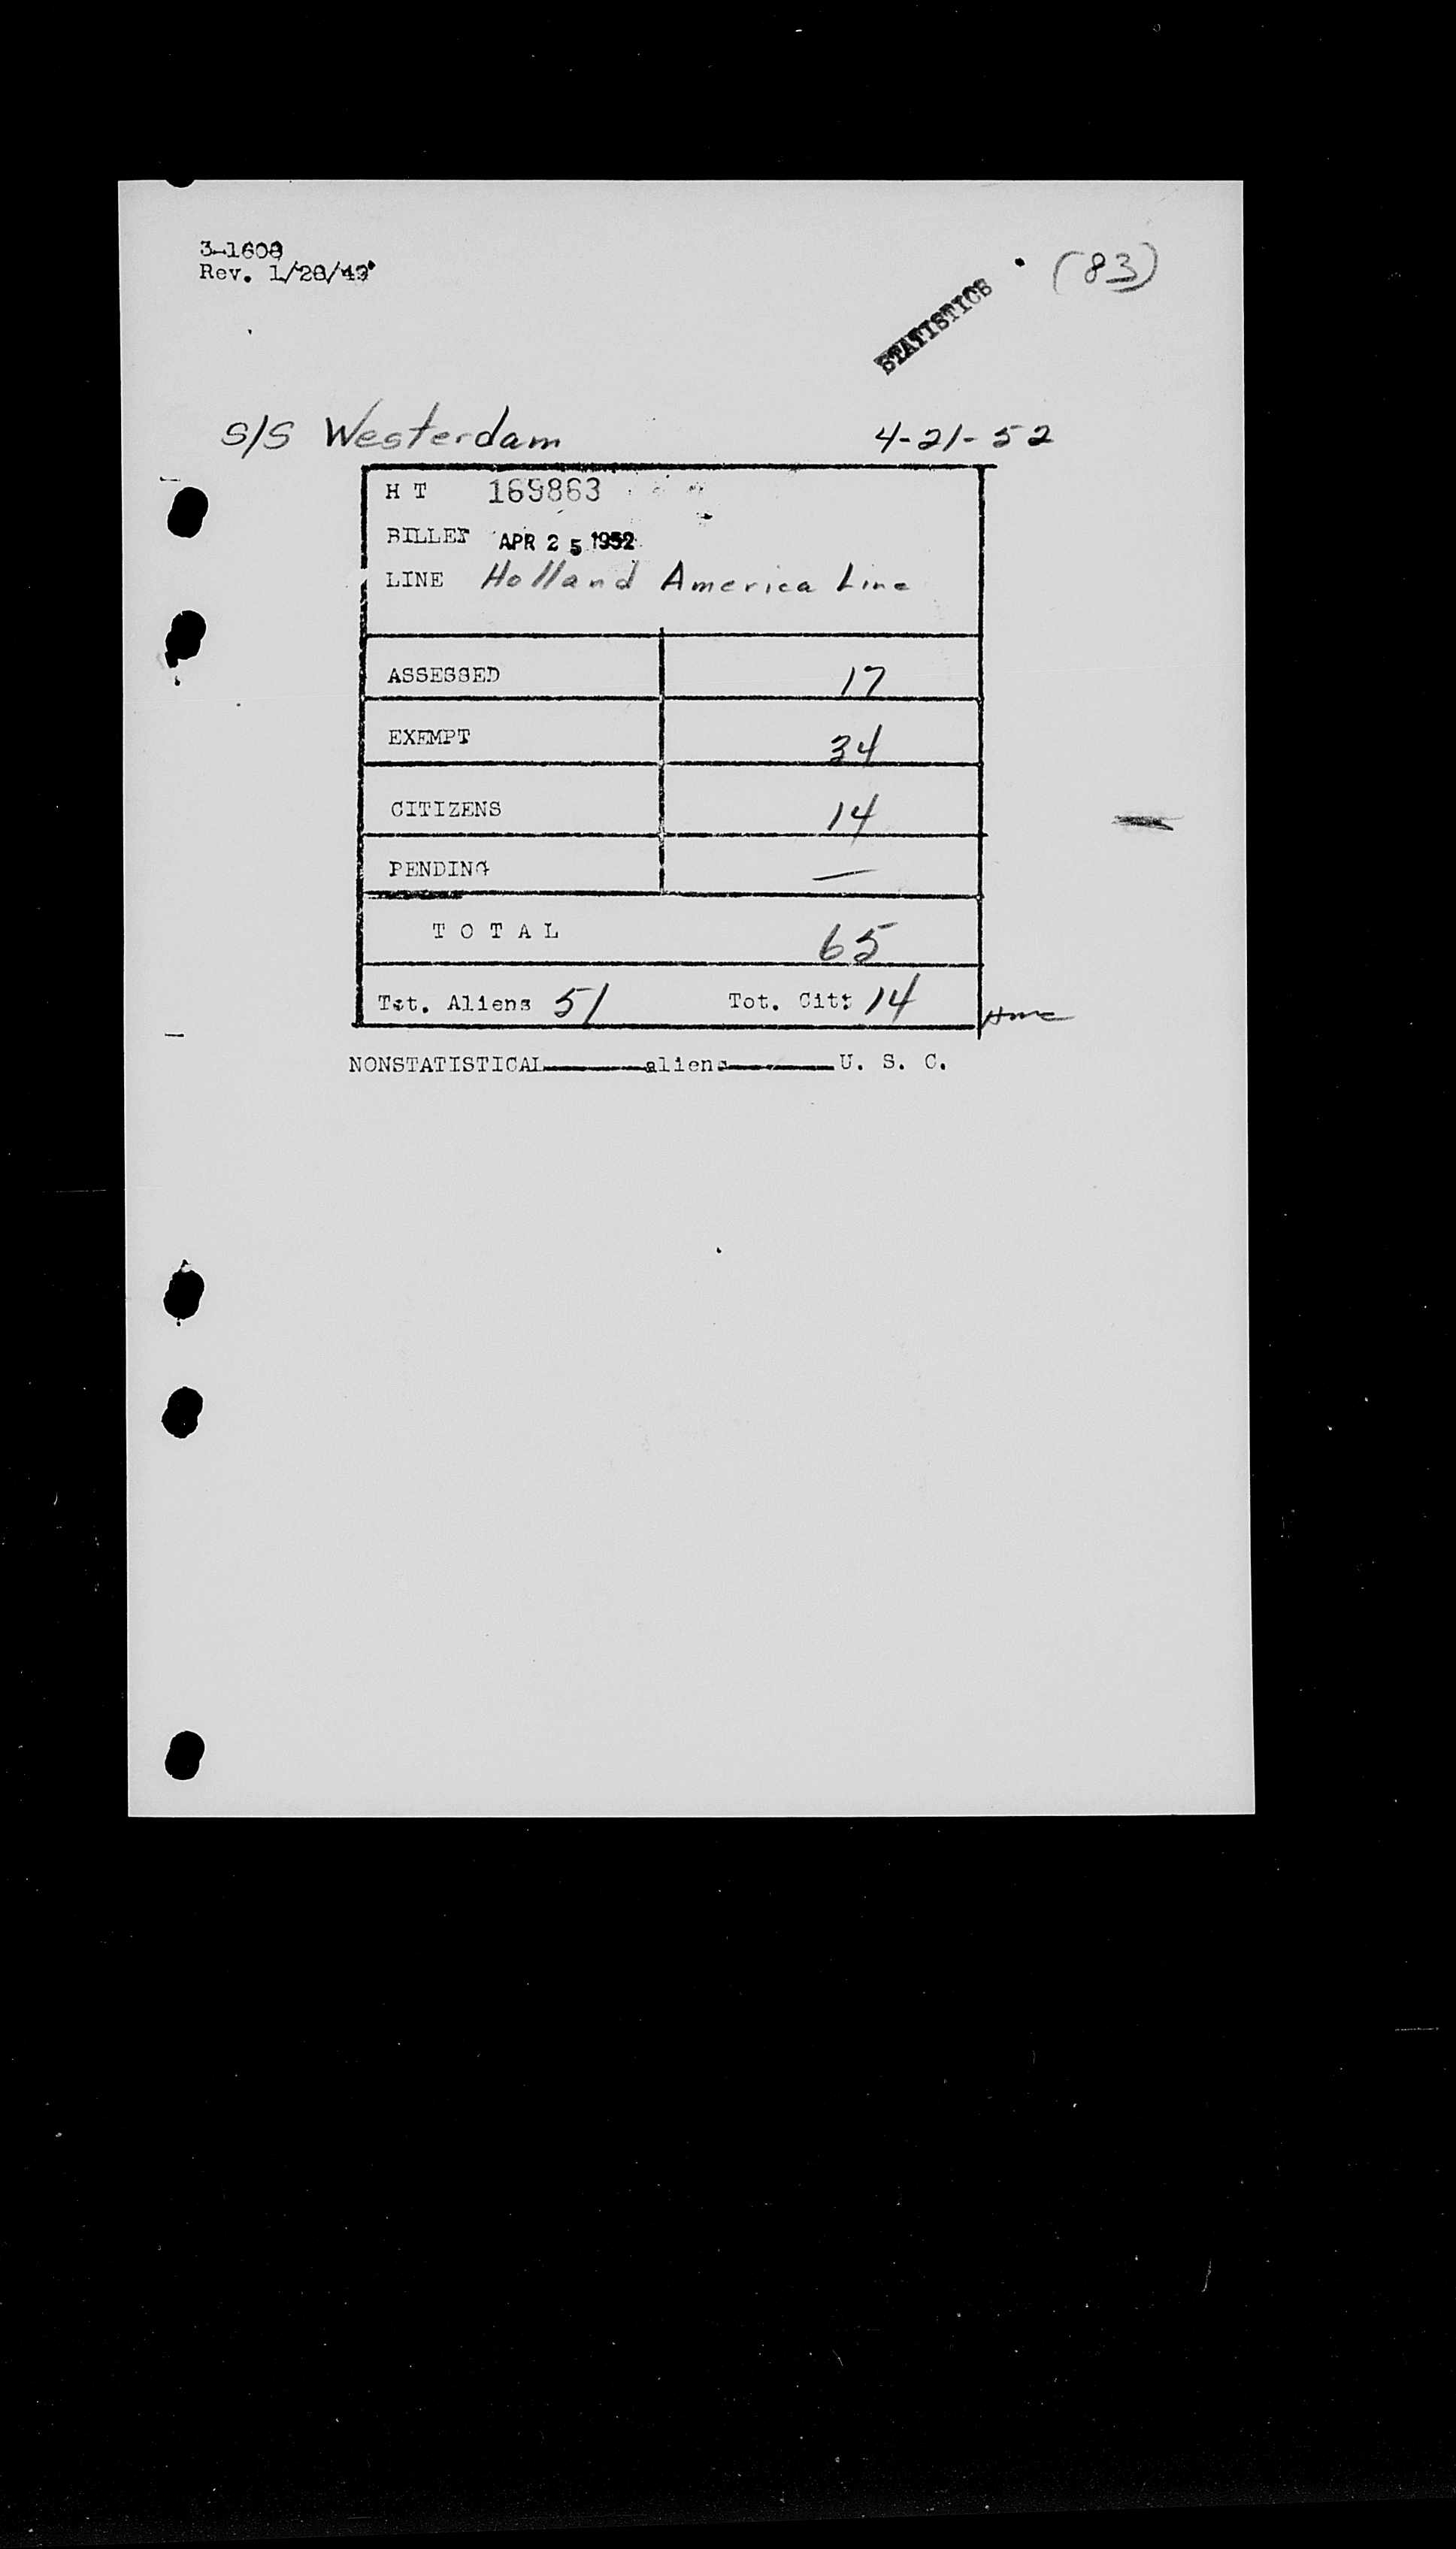 3-1608
Rev. 1/28/49
(83)
STATISTICS
S/S Westerdam 4-21-52
H T 169863
BILLET APR 25 1952
LINE Holland America Line
ASSESSED 17
EXEMPT 34
CITIZENS 14
PENDING —
T O T A L 65
Tot. Aliens 51 Tot. Cit: 14
NONSTATISTICAL aliens U. S. C.